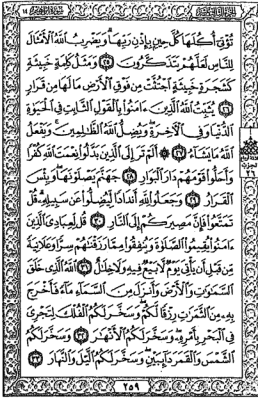 تُؤْتِىٓ أُكُلَهَا كُلَّ حِينٍۭ بِإِذْنِ رَبِّهَا ۗ وَيَضْرِبُ ٱللَّهُ ٱلْأَمْثَالَ
لِلنَّاسِ لَعَلَّهُمْ يَتَذَكَّرُونَ ٢٥ وَمَثَلُ كَلِمَةٍ خَبِيثَةٍ
كَشَجَرَةٍ خَبِيثَةٍ ٱجْتُثَّتْ مِن فَوْقِ ٱلْأَرْضِ مَا لَهَا مِن قَرَارٍ
٢٦ يُثَبِّتُ ٱللَّهُ ٱلَّذِينَ ءَامَنُوا۟ بِٱلْقَوْلِ ٱلثَّابِتِ فِى ٱلْحَيَوٰةِ
ٱلدُّنْيَا وَفِى ٱلْءَاخِرَةِ ۖ وَيُضِلُّ ٱللَّهُ ٱلظَّٰلِمِينَ ۚ وَيَفْعَلُ
ٱللَّهُ مَا يَشَآءُ ٢٧ أَلَمْ تَرَ إِلَى ٱلَّذِينَ بَدَّلُوا۟ نِعْمَتَ ٱللَّهِ كُفْرًا
وَأَحَلُّوا۟ قَوْمَهُمْ دَارَ ٱلْبَوَارِ ٢٨ جَهَنَّمَ يَصْلَوْنَهَا ۖ وَبِئْسَ
ٱلْقَرَارُ ٢٩ وَجَعَلُوا۟ لِلَّهِ أَندَادًا لِّيُضِلُّوا۟ عَن سَبِيلِهِۦ ۗ قُلْ
تَمَتَّعُوا۟ فَإِنَّ مَصِيرَكُمْ إِلَى ٱلنَّارِ ٣٠ قُل لِّعِبَادِىَ ٱلَّذِينَ
ءَامَنُوا۟ يُقِيمُوا۟ ٱلصَّلَوٰةَ وَيُنفِقُوا۟ مِمَّا رَزَقْنَٰهُمْ سِرًّا وَعَلَانِيَةً
مِّن قَبْلِ أَن يَأْتِىَ يَوْمٌ لَّا بَيْعٌ فِيهِ وَلَا خِلَٰلٌ ٣١ ٱللَّهُ ٱلَّذِى خَلَقَ
ٱلسَّمَٰوَٰتِ وَٱلْأَرْضَ وَأَنزَلَ مِنَ ٱلسَّمَآءِ مَآءً فَأَخْرَجَ
بِهِۦ مِنَ ٱلثَّمَرَٰتِ رِزْقًا لَّكُمْ ۖ وَسَخَّرَ لَكُمُ ٱلْفُلْكَ لِتَجْرِىَ
فِى ٱلْبَحْرِ بِأَمْرِهِۦ ۖ وَسَخَّرَ لَكُمُ ٱلْأَنْهَٰرَ ٣٢ وَسَخَّرَ لَكُمُ
ٱلشَّمْسَ وَٱلْقَمَرَ دَآئِبَيْنِ ۖ وَسَخَّرَ لَكُمُ ٱلَّيْلَ وَٱلنَّهَارَ ٣٣
٢٥٩